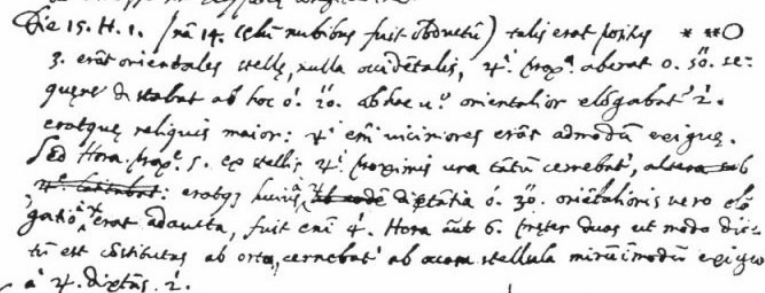 Die 15. H. 1. (nã 14. celũ nubibus fuit obductũ) talis erat positus * **O
3. erãt orientales stellę, nulla occidẽtalis, ♃.ⁱ propᵃ aberat 0. 50. se-
quens distabat ab hoc 0. 20. ab hac uº orientalior elõgabat' 2.
eratque reliquis maior: ♃ⁱ em̃ uiciniores erãt admodũ exiguę.
Sed Hora propᵉ 5. ex stellis ♃ⁱ proximis una tãtũ cernebat', altera sub
♃ᵉ latitabat: eratqȝ huius à ♃ ab eodẽ distãtia 0. 30. oriẽtalioris uero elõ
gatio à ♃ erat adaucta, fuit enĩ 4. Hora aũt 6. preter duas ut modo dic-
tũ est cõstitutas ab ortu, cernebat' ab occasu stellula mirũĩmodũ exigua
a ♃. distãs. 2.